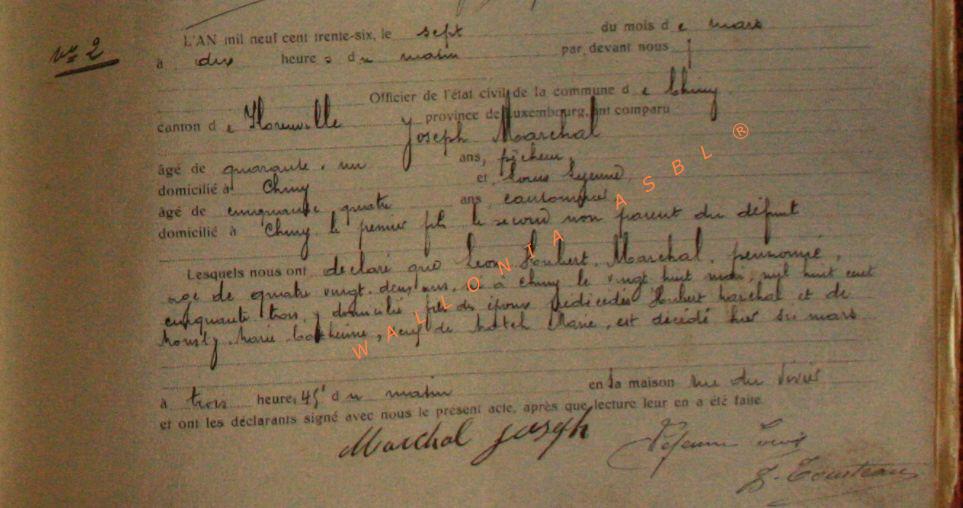 n° 2
L'AN mil neuf cent trente-six, le sept du mois d e mars
à dix heures du matin par devant nous
Officier de l'état civil de la commune d e Chiny
canton d e Florenville province de Luxembourg, ont comparu
Joseph Marchal
âgé de quarante-un ans, pêcheur,
domicilié à Chiny et Louis Lejeune,
âgé de cinquante quatre ans cantonnier
domicilié à Chiny le premier fils le second non parent du défunt
Lesquels nous ont déclaré que Léon Houbert Marchal, pensionné,
âgé de quatre vingt-deux ans, né à Chiny le vingt huit mai, mil huit cent
cinquante trois, y domicilié, fils des époux prédécédés Houbert Marchal et de
Marie Catherine, veuf de Marie, est décédé hier six mars
à trois heures 45' du matin en sa maison rue du
et ont les déclarants signé avec nous le présent acte, après que lecture leur en a été faite.
Marchal Joseph
Lejeune Louis
WALLONIA ASBL ®